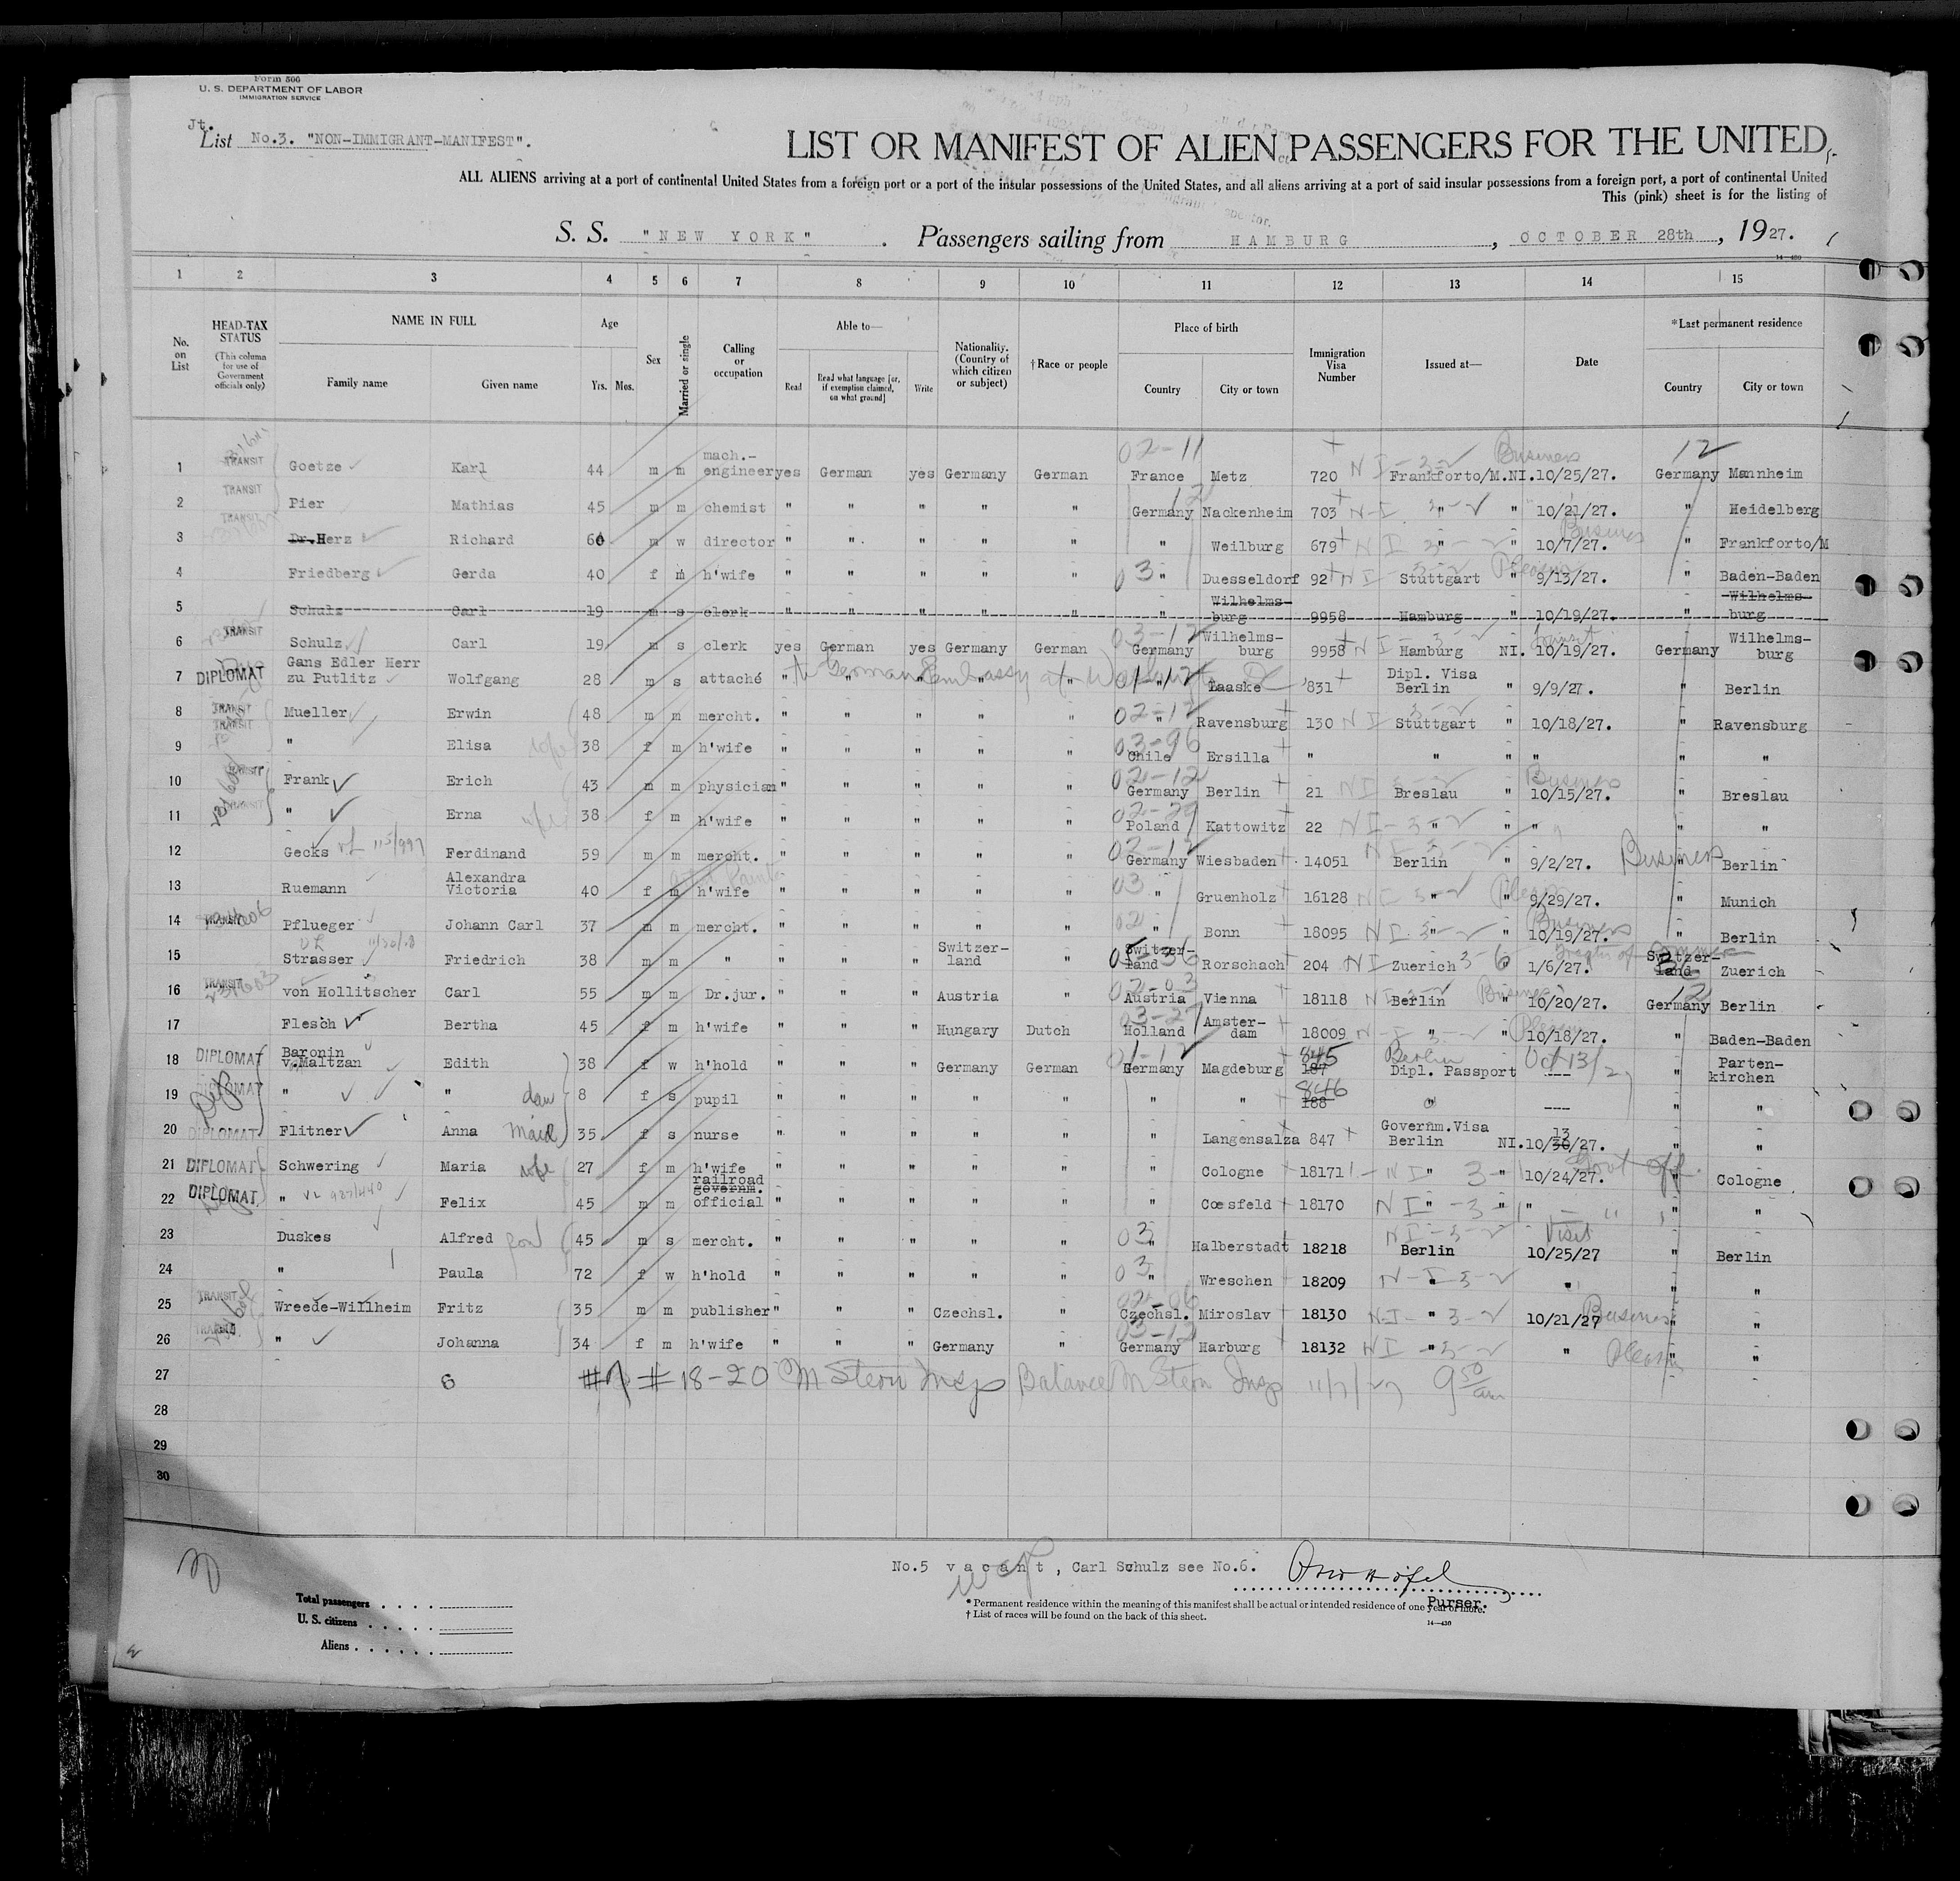 Form 500
U. S. DEPARTMENT OF LABOR
IMMIGRATION SERVICE
Jt.
List No.3. "NON-IMMIGRANT-MANIFEST".
LIST OR MANIFEST OF ALIEN PASSENGERS FOR THE UNITED
ALL ALIENS arriving at a port of continental United States from a foreign port or a port of the insular possessions of the United States, and all aliens arriving at a port of said insular possessions from a foreign port, a port of continental United
This (pink) sheet is for the listing of
S. S. "NEW YORK". Passengers sailing from HAMBURG, OCTOBER 28th, 1927.
14—430
1 2 3 4 5 6 7 8 9 10 11 12 13 14 15
No. on List
HEAD-TAX STATUS (This column for use of Government officials only)
NAME IN FULL Family name Given name
Age Yrs. Mos.
Sex
Married or single
Calling or occupation
Able to— Read Read what language [or, if exemption claimed, on what ground] Write
Nationality. (Country of which citizen or subject)
†Race or people
Place of birth Country City or town
Immigration Visa Number
Issued at—
Date
*Last permanent residence Country City or town
1 TRANSIT Goetze Karl 44 m m mach.-engineer yes German yes Germany German 02-11 France Metz 720 NI-3-2 Frankforto/M. NI. 10/25/27. Business 12 Germany Mannheim
2 TRANSIT Pier Mathias 45 m m chemist " " " " " 12 Germany Nackenheim 703 NI 3-2 " " 10/21/27. " Heidelberg
3 TRANSIT Dr. Herz Richard 60 m w director " " " " " " Weilburg 679 NI 3-2 " " 10/7/27. Business " Frankforto/M
4 Friedberg Gerda 40 f m h'wife " " " " " 03 " Duesseldorf 92 NI 3-2 Stuttgart " 9/13/27. Pleasure " Baden-Baden
5 Schulz Carl 19 m s clerk " " " " " " Wilhelms-burg 9958 Hamburg " 10/19/27. " Wilhelms-burg
6 TRANSIT Schulz Carl 19 m s clerk yes German yes Germany German 03-12 Germany Wilhelms-burg 9958 NI-3-2 Hamburg NI. 10/19/27. transit Germany Wilhelms-burg
7 DIPLOMAT Gans Edler Herr zu Putlitz Wolfgang 28 m s attaché " " " " " to German Embassy at 01-12 " Laaske 831 Dipl. Visa Berlin " 9/9/27. " Berlin
8 TRANSIT Mueller Erwin 48 m m mercht. " " " " " 02-12 " Ravensburg 130 NI 3-2 Stuttgart " 10/18/27. " Ravensburg
9 TRANSIT " Elisa wife 38 f m h'wife " " " " " 03-96 Chile Ersilla " " " " " "
10 TRANSIT Frank Erich 43 m m physician " " " " " 02-12 Germany Berlin 21 NI 3-2 Breslau " 10/15/27. Business " Breslau
11 TRANSIT " Erna wife 38 f m h'wife " " " " " 02-29 Poland Kattowitz 22 NI-3-2 " " " " "
12 Gecks Ferdinand 59 m m mercht. " " " " " 02-12 Germany Wiesbaden 14051 NI 3-2 Berlin " 9/2/27. Business " Berlin
13 Ruemann Alexandra Victoria 40 f m h'wife " " " " " 03 " Gruenholz 16128 NI 3-2 " " 9/29/27. Pleasure " Munich
14 TRANSIT Pflueger Johann Carl 37 m m mercht. " " " " " 02 " Bonn 18095 NI 3-2 " " 10/19/27. Business " Berlin
15 Strasser Friedrich 38 m m " " " " Switzer-land " Switzer-land Rorschach 204 NI Zuerich 3-6 " 1/6/27. Switzer-land Zuerich
16 TRANSIT von Hollitscher Carl 55 m m Dr.jur. " " " Austria " 02-03 Austria Vienna 18118 NI Berlin " 10/20/27. Business 12 Germany Berlin
17 Flesch Bertha 45 f m h'wife " " " Hungary Dutch 03-27 Holland Amster-dam 18009 NI 3-2 " " 10/18/27. Pleasure " Baden-Baden
18 DIPLOMAT Baronin v.Maltzan Edith 38 f w h'hold " " " Germany German 01-12 Germany Magdeburg 845 187 Berlin Dipl. Passport Oct 13/27 " Parten-kirchen
19 DIPLOMAT " " dau 8 f s pupil " " " " " " " 846 188 " --- " "
20 DIPLOMAT Flitner Anna maid 35 f s nurse " " " " " " Langensalza 847 Governm.Visa Berlin NI. 10/13/27. " "
21 DIPLOMAT Schwering Maria wife 27 f m h'wife " " " " " " Cologne 18171 NI " 3-1 " 10/24/27. Govt Offl. " Cologne
22 DIPLOMAT " Felix 45 m m railroad governm. official " " " " " " Coesfeld 18170 NI " 3-1 " " " "
23 Duskes Alfred son 45 m s mercht. " " " " " 03 " Halberstadt 18218 NI-3-2 Berlin 10/25/27 Visit " Berlin
24 " Paula 72 f w h'hold " " " " " 03 " Wreschen 18209 NI 3-2 " " " "
25 TRANSIT Wreede-Willheim Fritz 35 m m publisher " " " Czechsl. " 02-06 Czechsl. Miroslav 18130 NI " 3-2 10/21/27 Business " "
26 TRANSIT " Johanna 34 f m h'wife " " " Germany " 03-12 Germany Harburg 18132 NI " 3-2 " Pleasure " "
27 6 #7 #18-20 M Stern Insp Balance M Stern Insp 11/7/27 9 50 am
28
29
30
No.5 vacant, Carl Schulz see No.6.
Purser.
Total passengers
U. S. citizens
Aliens
* Permanent residence within the meaning of this manifest shall be actual or intended residence of one year or more.
† List of races will be found on the back of this sheet.
14—430